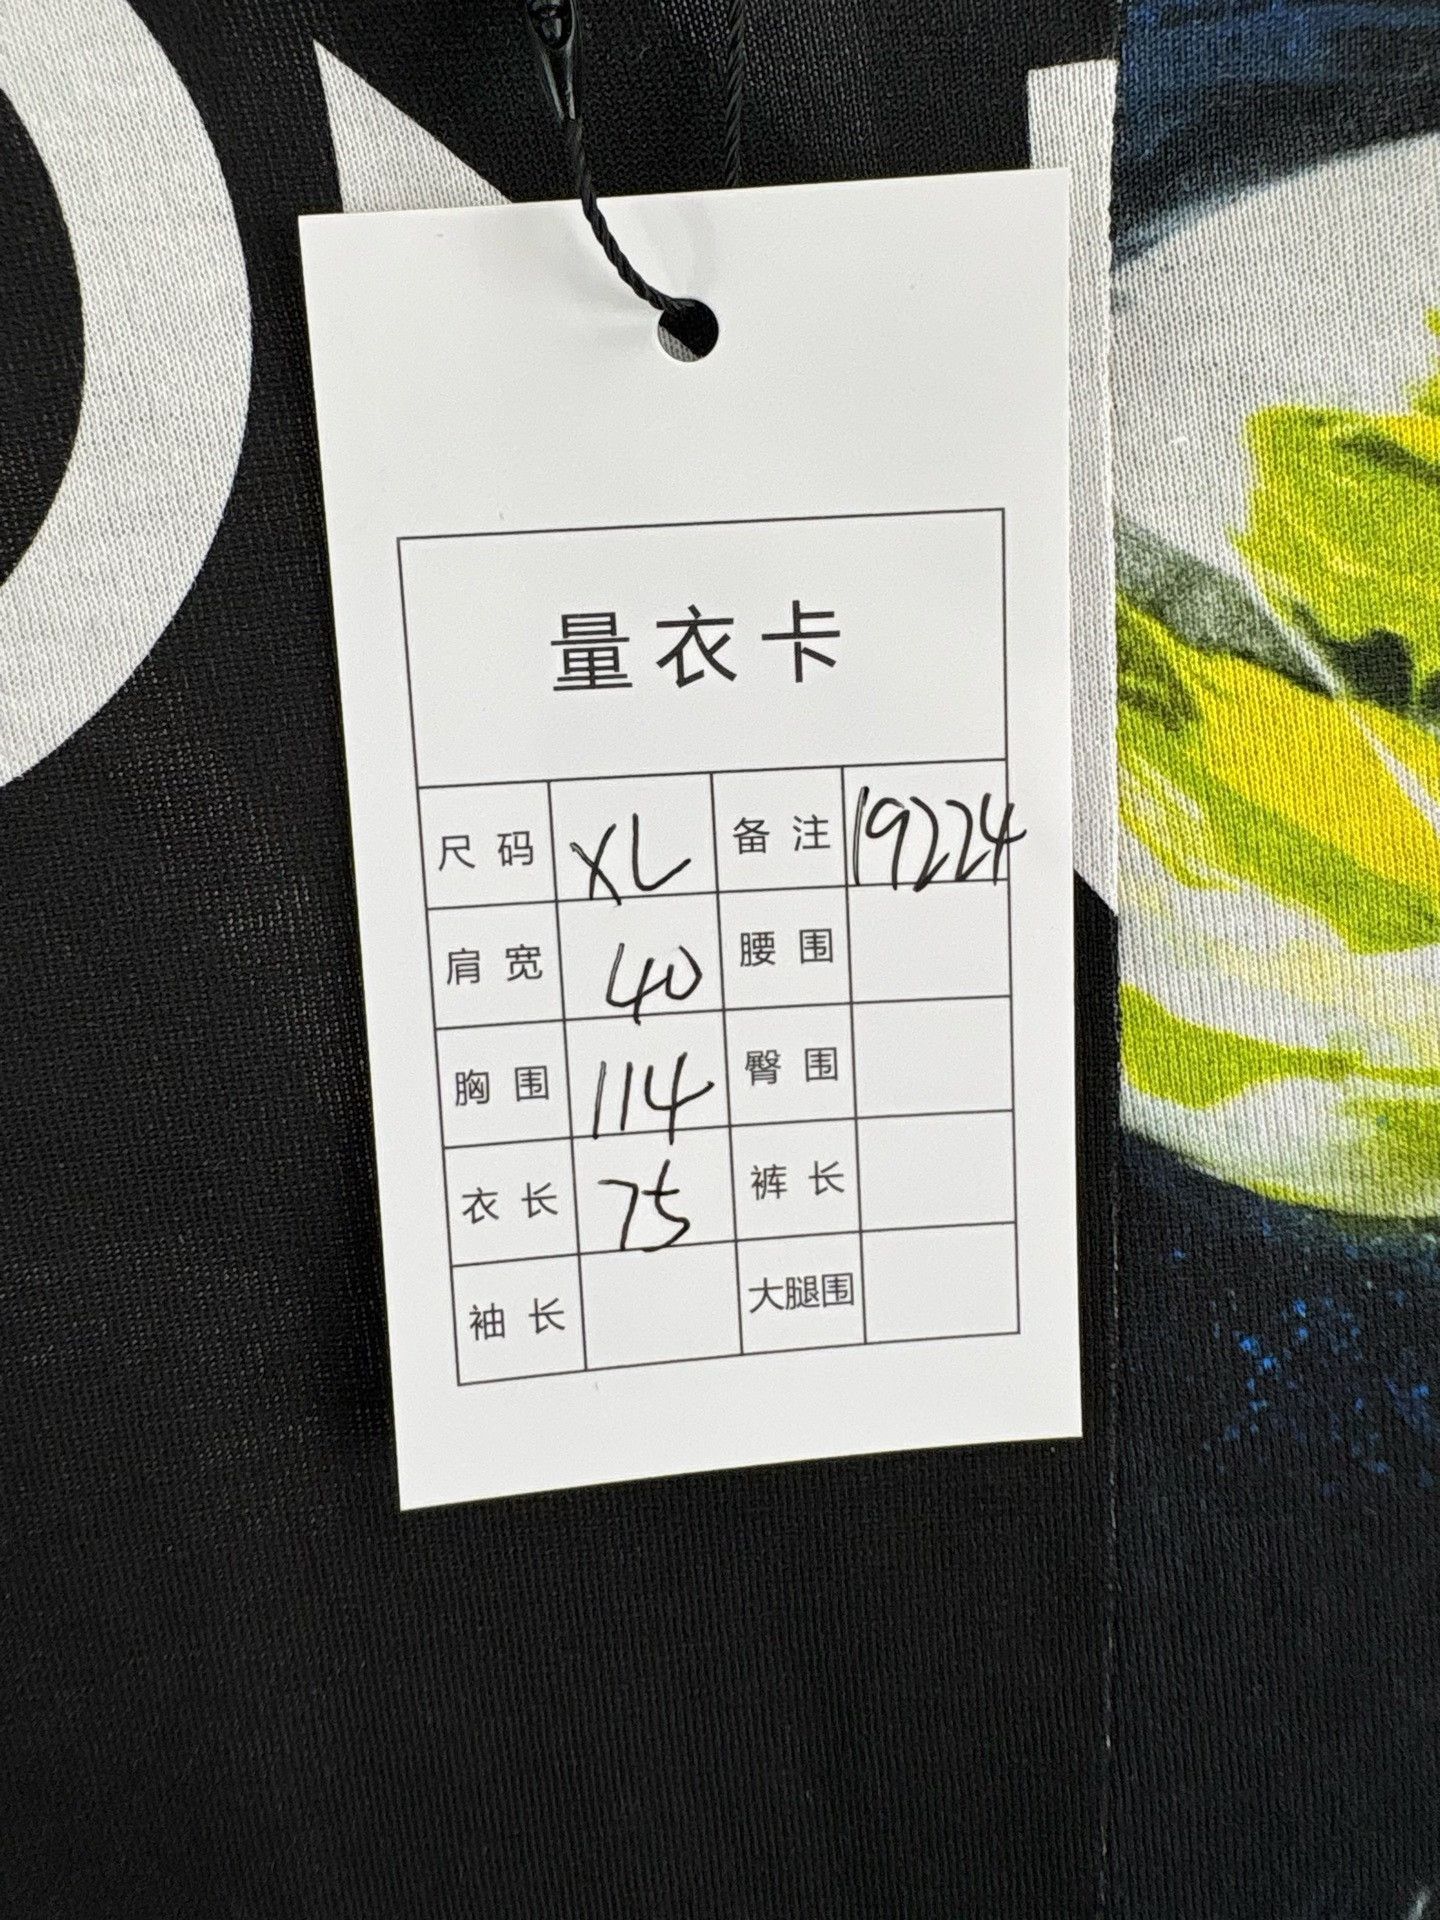 量衣卡
尺码 XL 备注 19224
肩宽 40 腰围
胸围 114 臀围
衣长 75 裤长
袖长 大腿围